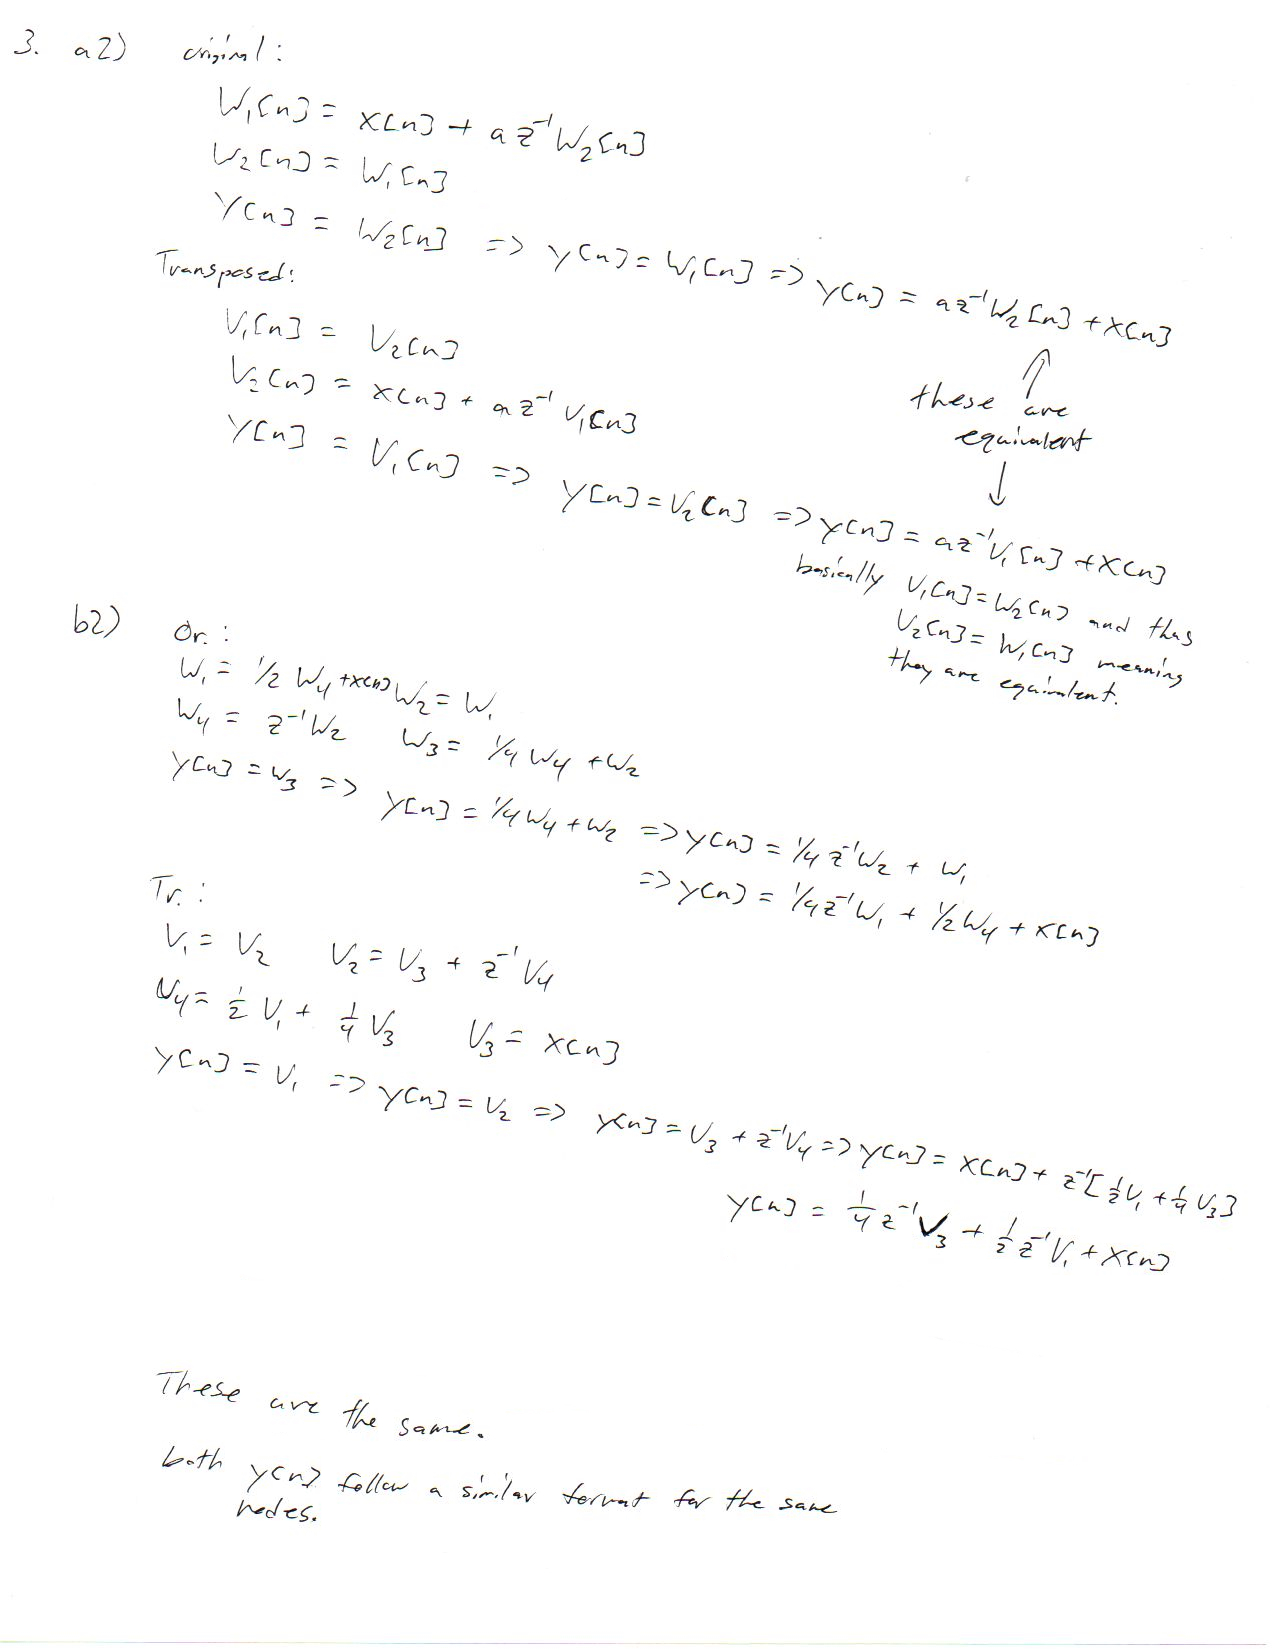 3. a2) original:
W₁[n] = x[n] + a z⁻¹ W₂[n]
W₂[n] = W₁[n]
Y[n] = W₂[n] => y[n] = W₁[n] => y[n] = a z⁻¹ W₂[n] + x[n]
Transposed:
V₁[n] = V₂[n]
V₂[n] = x[n] + a z⁻¹ V₁[n]
these are
equivalent
Y[n] = V₁[n] => y[n] = V₂[n] => y[n] = a z⁻¹ V₁[n] + x[n]
basically V₁[n] = W₂[n] and thus
V₂[n] = W₁[n] meaning
they are equivalent.
b2) Or.:
W₁ = 1/2 W₄ + x[n] W₂ = W₁
W₄ = z⁻¹ W₂ W₃ = 1/4 W₄ + W₂
y[n] = W₃ => y[n] = 1/4 W₄ + W₂ => y[n] = 1/4 z⁻¹ W₂ + W₁
=> y[n] = 1/4 z⁻¹ W₁ + 1/2 W₄ + x[n]
Tr.:
V₁ = V₂ V₂ = V₃ + z⁻¹ V₄
V₄ = 1/2 V₁ + 1/4 V₃ V₃ = x[n]
y[n] = V₁ => y[n] = V₂ => y[n] = V₃ + z⁻¹ V₄ => y[n] = x[n] + z⁻¹ [1/2 V₁ + 1/4 V₃]
y[n] = 1/4 z⁻¹ V₃ + 1/2 z⁻¹ V₁ + x[n]
These are the same.
both y[n] follow a similar format for the same
nodes.